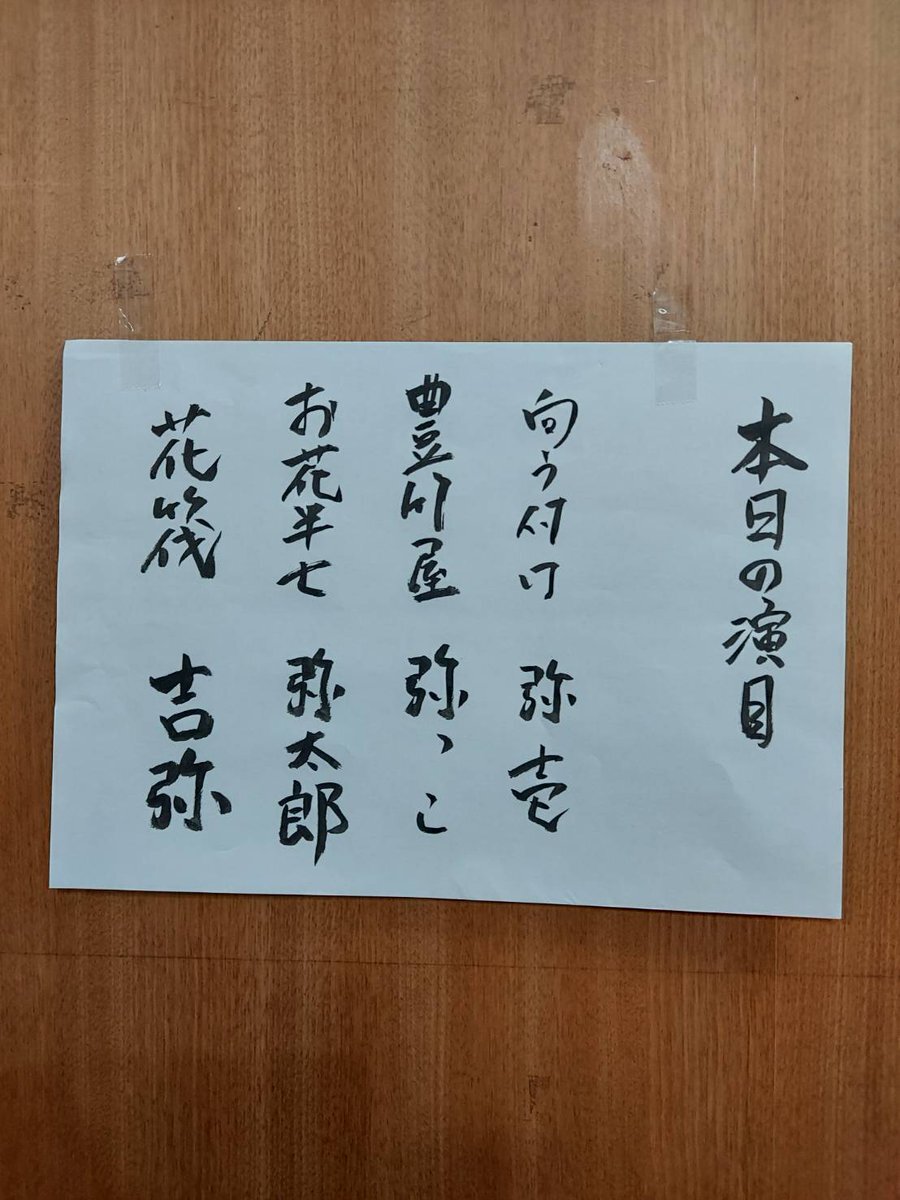 本日の演目
向う付け 弥壱
豊竹屋 弥っこ
お花半七 弥太郎
花筏 吉弥